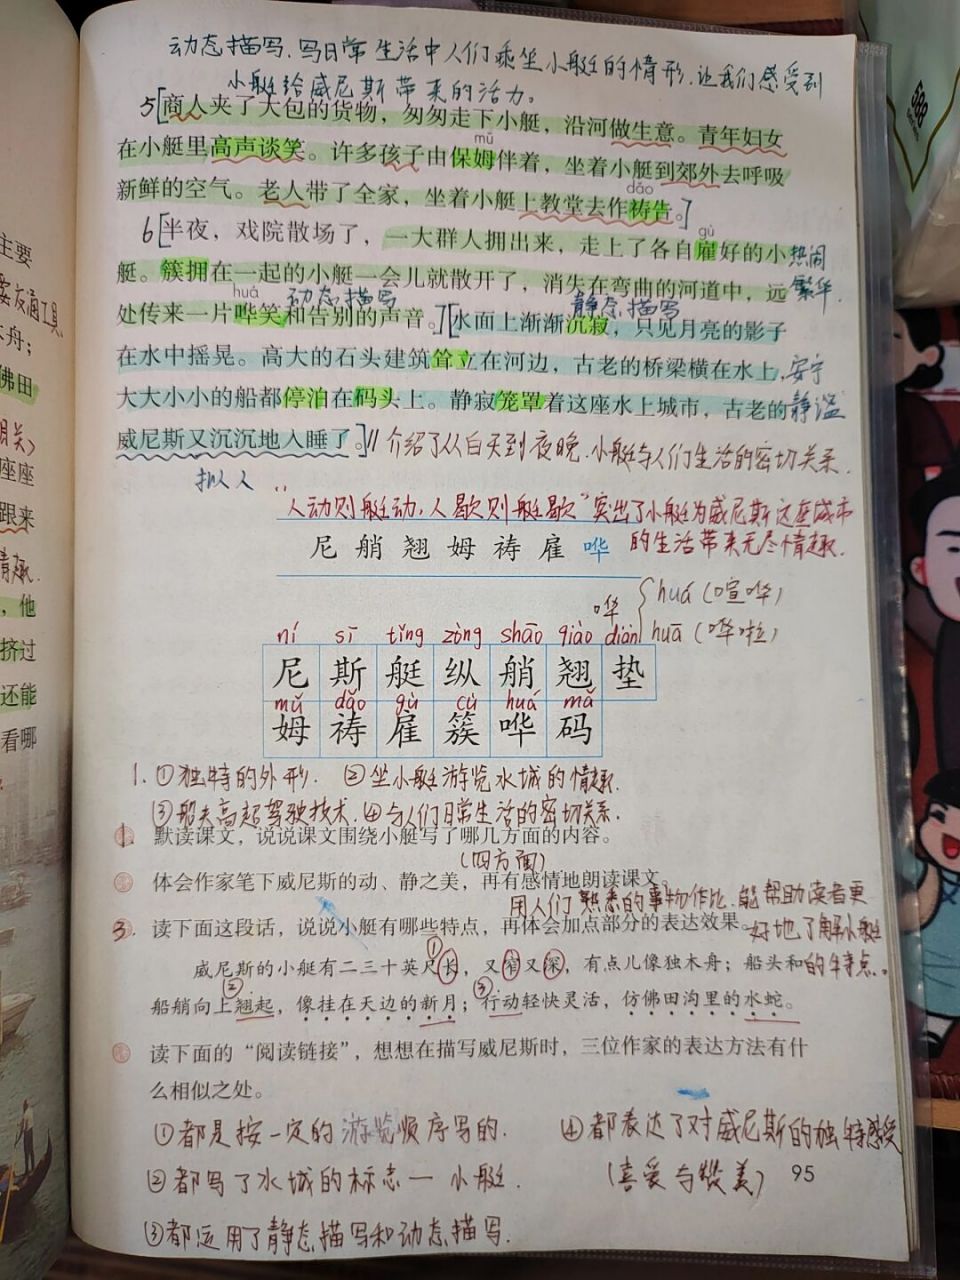 动态描写.写日常生活中人们乘坐小艇的情形.让我们感受到
小艇给威尼斯带来的活力。
5[商人夹了大包的货物，匆匆走下小艇，沿河做生意。青年妇女
mǔ
在小艇里高声谈笑。许多孩子由保姆伴着，坐着小艇到郊外去呼吸
dǎo
新鲜的空气。老人带了全家，坐着小艇上教堂去作祷告。]
gù
6[半夜，戏院散场了，一大群人拥出来，走上了各自雇好的小 热闹
艇。簇拥在一起的小艇一会儿就散开了，消失在弯曲的河道中，远 繁华.
huá 动态描写 静态描写
处传来一片哗笑和告别的声音。][水面上渐渐沉寂，只见月亮的影子
在水中摇晃。高大的石头建筑耸立在河边，古老的桥梁横在水上， 安宁
大大小小的船都停泊在码头上。静寂笼罩着这座水上城市，古老的 静谧
威尼斯又沉沉地入睡了。]// 介绍了从白天到夜晚.小艇与人们生活的密切关系.
拟人
“人动则艇动,人歇则艇歇”突出了小艇为威尼斯这座城市
的生活带来无尽情趣.
尼 艄 翘 姆 祷 雇 哗
哗 { huá (喧哗)
huā (哗啦)
ní sī tǐng zòng shāo qiào diàn
尼 斯 艇 纵 艄 翘 垫
mǔ dǎo gù cù huá mǎ
姆 祷 雇 簇 哗 码
1. ①独特的外形. ②坐小艇游览水城的情趣.
③船夫高超驾驶技术.④与人们日常生活的密切关系.
1. 默读课文，说说课文围绕小艇写了哪几方面的内容。
(四方面)
体会作家笔下威尼斯的动、静之美，再有感情地朗读课文。
用人们熟悉的事物作比.能帮助读者更
3. 读下面这段话，说说小艇有哪些特点，再体会加点部分的表达效果。 好地了解小艇
①
威尼斯的小艇有二三十英尺长，又窄又深，有点儿像独木舟；船头和 的特点。
② ③
船艄向上翘起，像挂在天边的新月；行动轻快灵活，仿佛田沟里的水蛇。
读下面的“阅读链接”，想想在描写威尼斯时，三位作家的表达方法有什
么相似之处。
①都是按一定的游览顺序写的. ④都表达了对威尼斯的独特感受
②都写了水城的标志一 小艇. (喜爱与赞美)
95
③都运用了静态描写和动态描写.
主要
木舟；
佛田
座座
跟来
情趣.
，他
挤过
还能
看哪